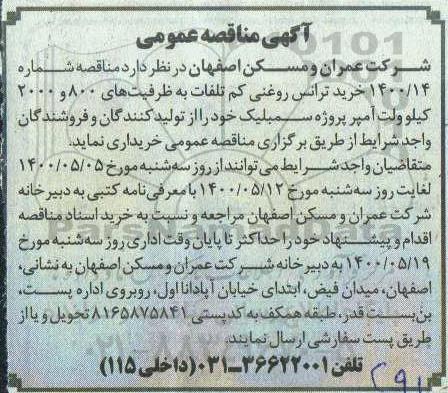 آگهی مناقصه عمومی
شرکت عمران و مسکن اصفهان در نظر دارد مناقصه شماره
۱۴۰۰/۱۴ خرید ترانس روغنی کم تلفات به ظرفیت‌های ۸۰۰ و ۲۰۰۰
کیلو ولت آمپر پروژه سمبلیک خود را از تولیدکنندگان و فروشندگان
واجد شرایط از طریق برگزاری مناقصه عمومی خریداری نماید.
متقاضیان واجد شرایط می توانند از روز سه‌شنبه مورخ ۱۴۰۰/۰۵/۰۵
لغایت روز سه‌شنبه مورخ ۱۴۰۰/۰۵/۱۲ با معرفی نامه کتبی به دبیرخانه
شرکت عمران و مسکن اصفهان مراجعه و نسبت به خرید اسناد مناقصه
اقدام و پیشنهاد خود را حداکثر تا پایان وقت اداری روز سه‌شنبه مورخ
۱۴۰۰/۰۵/۱۹ به دبیرخانه شرکت عمران و مسکن اصفهان به نشانی،
اصفهان، میدان فیض، ابتدای خیابان آپادانا اول، روبروی اداره پست،
بن‌بست قدر، طبقه همکف به کدپستی ۸۱۶۵۸۷۵۸۴۱ تحویل و یا از
طریق پست سفارشی ارسال نمایند.
تلفن ۳۶۶۲۲۰۰۱-۰۳۱ (داخلی ۱۱۵)
ParsNamadData